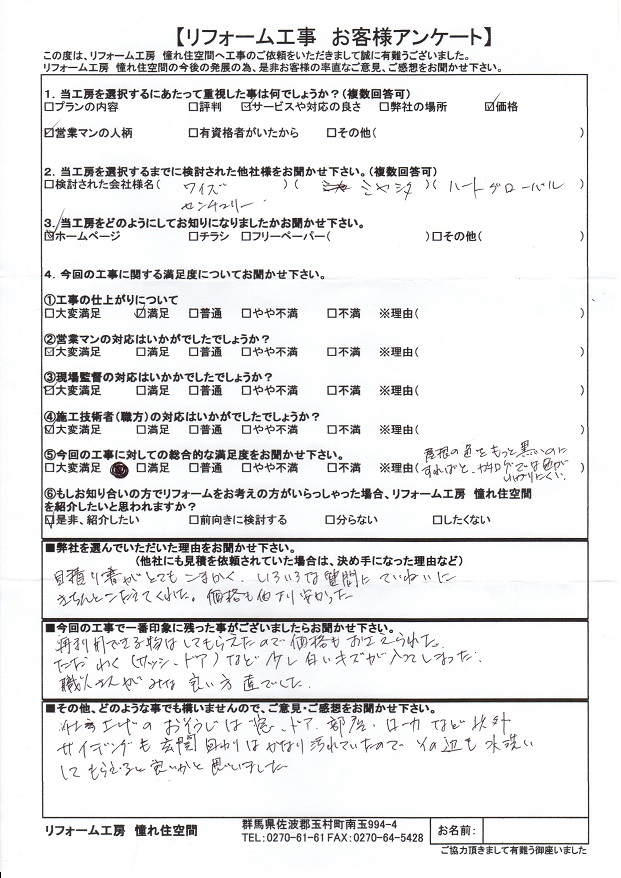 【リフォーム工事　お客様アンケート】
この度は、リフォーム工房　憧れ住空間へ工事のご依頼をいただきまして誠に有難うございました。
リフォーム工房　憧れ住空間の今後の発展の為、是非お客様の率直なご意見、ご感想をお聞かせ下さい。
1. 当工房を選択するにあたって重視した事は何でしょうか？(複数回答可)
□プランの内容　□評判　☑サービスや対応の良さ　□弊社の場所　☑価格
☑営業マンの人柄　□有資格者がいたから　□その他(　)
2. 当工房を選択するまでに検討された他社様をお聞かせ下さい。(複数回答可)
□検討された会社様名(ワイズ　)(ミヤシタ)(ハートグローバル
センチュリー
3. 当工房をどのようにしてお知りになりましたかお聞かせ下さい。
☑ホームページ　□チラシ　□フリーペーパー(　)□その他(　)
4. 今回の工事に関する満足度についてお聞かせ下さい。
①工事の仕上がりについて
□大変満足　☑満足　□普通　□やや不満　□不満　※理由(　)
②営業マンの対応はいかがでしたでしょうか？
☑大変満足　□満足　□普通　□やや不満　□不満　※理由(　)
③現場監督の対応はいかかでしたでしょうか？
☑大変満足　□満足　□普通　□やや不満　□不満　※理由(　)
④施工技術者(職方)の対応はいかがでしたでしょうか？
☑大変満足　□満足　□普通　□やや不満　□不満　※理由(　)
⑤今回の工事に対しての総合的な満足度をお聞かせ下さい。
□大変満足　□満足　□普通　□やや不満　□不満　※理由(屋根の色をもっと黒いのに
すればと、カタログでは色が
いりにくい。)
⑥もしお知り合いの方でリフォームをお考えの方がいらっしゃった場合、リフォーム工房　憧れ住空間
を紹介したいと思われますか？
☑是非、紹介したい　□前向きに検討する　□分らない　□したくない
■弊社を選んでいただいた理由をお聞かせ下さい。
(他社にも見積を依頼されていた場合は、決め手になった理由など)
見積り書がとてもこまかく、いろいろな質問にていねいに
きちんとこたえてくれた。価格も他より安かった
■今回の工事で一番印象に残った事がございましたらお聞かせ下さい。
再利用できる物はしてもらえたので価格もおさえられた。
ただ わく(サッシ、ドア)など少し白いキズが入ってしまった。
職人さんがみな良い方達でした。
■その他、どのような事でも構いませんので、ご意見・ご感想をお聞かせ下さい。
仕上げのおそうじは窓、ドア、部屋、ローカなど以外
サイディングも玄関回りはかなり汚れていたので、その辺も水洗い
してもらえると良いかと思いました
リフォーム工房　憧れ住空間
群馬県佐波郡玉村町南玉994-4
TEL:0270-61-61 FAX:0270-64-5428
お名前：
ご協力頂きまして有難う御座いました